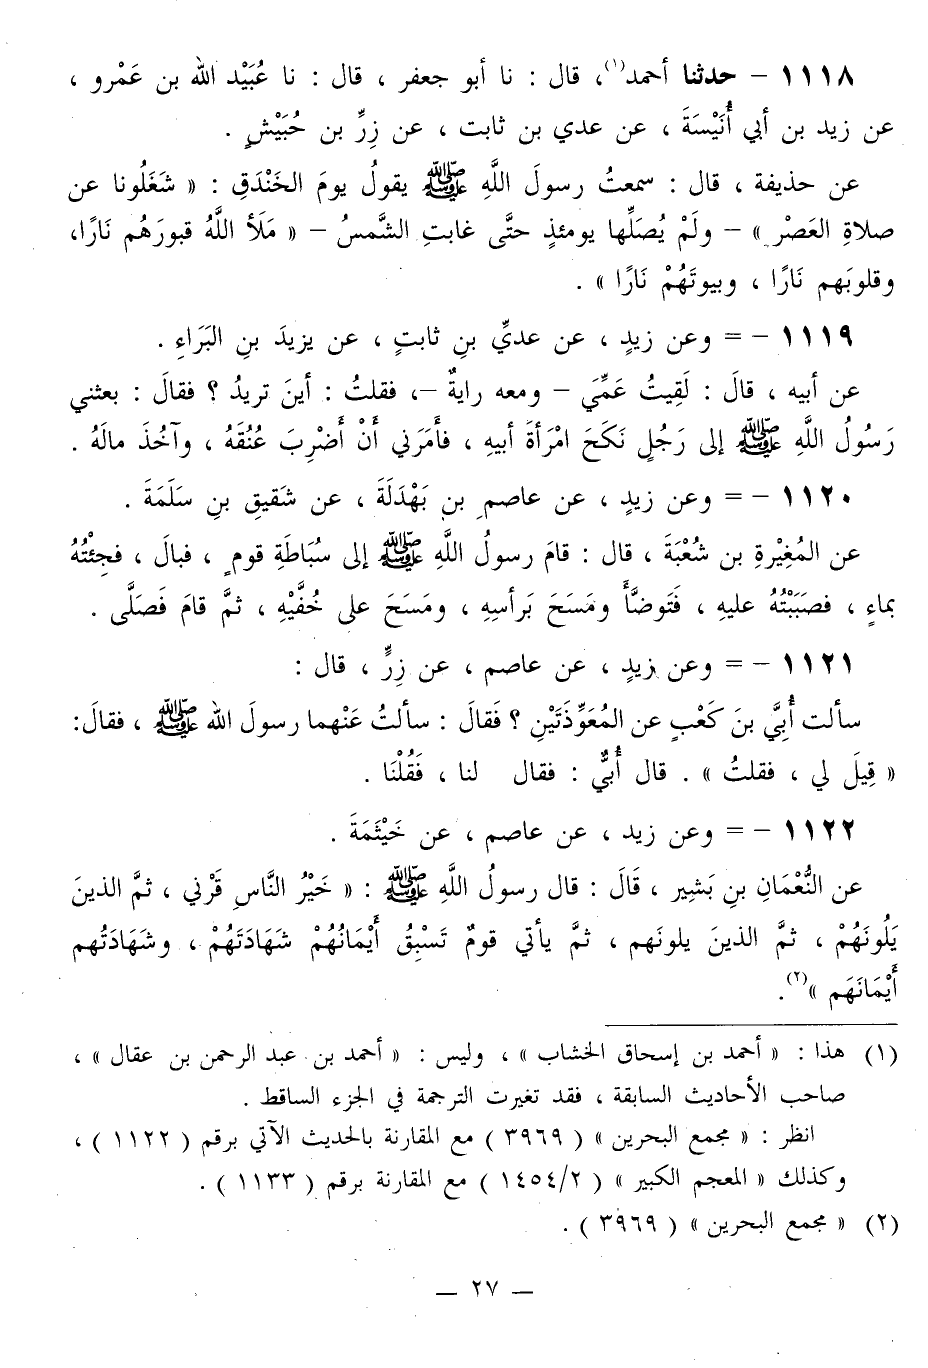 ١١١٨ – حدثنا أحمد(١)، قال : نا أبو جعفر ، قال : نا عُبَيْد الله بن عَمْرو ،
عن زيد بن أبي أُنَيْسَةَ ، عن عدي بن ثابت ، عن زِرِّ بن حُبَيْشٍ .
عن حذيفة ، قال : سمعتُ رسولَ اللَّهِ ﷺ يقولُ يومَ الخَنْدَقِ : « شَغَلُونا عن
صلاةِ العَصْرِ » – ولَمْ يُصَلِّها يومئذٍ حتَّى غابتِ الشَّمسُ – « مَلَأ اللَّهُ قبورَهُم نَارًا،
وقلوبَهم نَارًا ، وبيوتَهُمْ نَارًا » .
١١١٩ – = وعن زيدٍ ، عن عديِّ بنِ ثابتٍ ، عن يزيدَ بنِ البَرَاءِ .
عن أبيه ، قالَ : لَقِيتُ عَمِّيَ – ومعه رايةٌ –، فقلتُ : أينَ تريدُ ؟ فقالَ : بعثني
رَسُولُ اللَّهِ ﷺ إلى رَجُلٍ نَكَحَ امْرَأةَ أبيهِ ، فأَمَرَني أَنْ أَضْرِبَ عُنُقَهُ ، وآخُذَ مالَهُ .
١١٢٠ – = وعن زيدٍ ، عن عاصمِ بنِ بَهْدَلَةَ ، عن شَقيقِ بنِ سَلَمَةَ .
عن المُغِيْرةِ بن شُعْبَةَ ، قال : قامَ رسولُ اللَّهِ ﷺ إلى سُبَاطَةِ قومٍ ، فبالَ ، فجِئْتُهُ
بماءٍ ، فصَبَبْتُهُ عليهِ ، فَتَوضَّأَ ومَسَحَ بَرأسِهِ ، ومَسَحَ على خُفَّيْهِ ، ثمَّ قامَ فَصَلَّى .
١١٢١ – = وعن زيدٍ ، عن عاصم ، عن زِرٍّ ، قال :
سألت أُبيَّ بنَ كَعْبٍ عن المُعَوِّذَتَيْنِ ؟ فَقالَ : سألتُ عَنْهما رسولَ الله ﷺ ، فقالَ:
« قِيلَ لي ، فقلتُ » . قال أُبيٌّ : فقال لنا ، فَقُلْنَا .
١١٢٢ – = وعن زيد ، عن عاصم ، عن خَيْثَمَةَ .
عن النُّعْمَانِ بنِ بَشيِر ، قَالَ : قال رسولُ اللَّهِ ﷺ : « خَيْرُ النَّاسِ قَرْني ، ثمَّ الذينَ
يَلُونَهُمْ ، ثمَّ الذينَ يلونَهم ، ثمَّ يأتي قومٌ تَسْبِقُ أَيْمَانُهُمْ شَهَادَتَهُمْ ، وشَهَادَتُهم
أَيْمَانَهَم »(٢).
(١) هذا : « أحمد بن إسحاق الخشاب » ، وليس : « أحمد بن عبد الرحمن بن عقال » ،
صاحب الأحاديث السابقة ، فقد تغيرت الترجمة في الجزء الساقط .
انظر : « مجمع البحرين » ( ٣٩٦٩ ) مع المقارنة بالحديث الآتي برقم ( ١١٢٢ ) ،
وكذلك « المعجم الكبير » ( ١٤٥٤/٢ ) مع المقارنة برقم ( ١١٣٣ ) .
(٢) « مجمع البحرين » ( ٣٩٦٩ ) .
– ٢٧ –